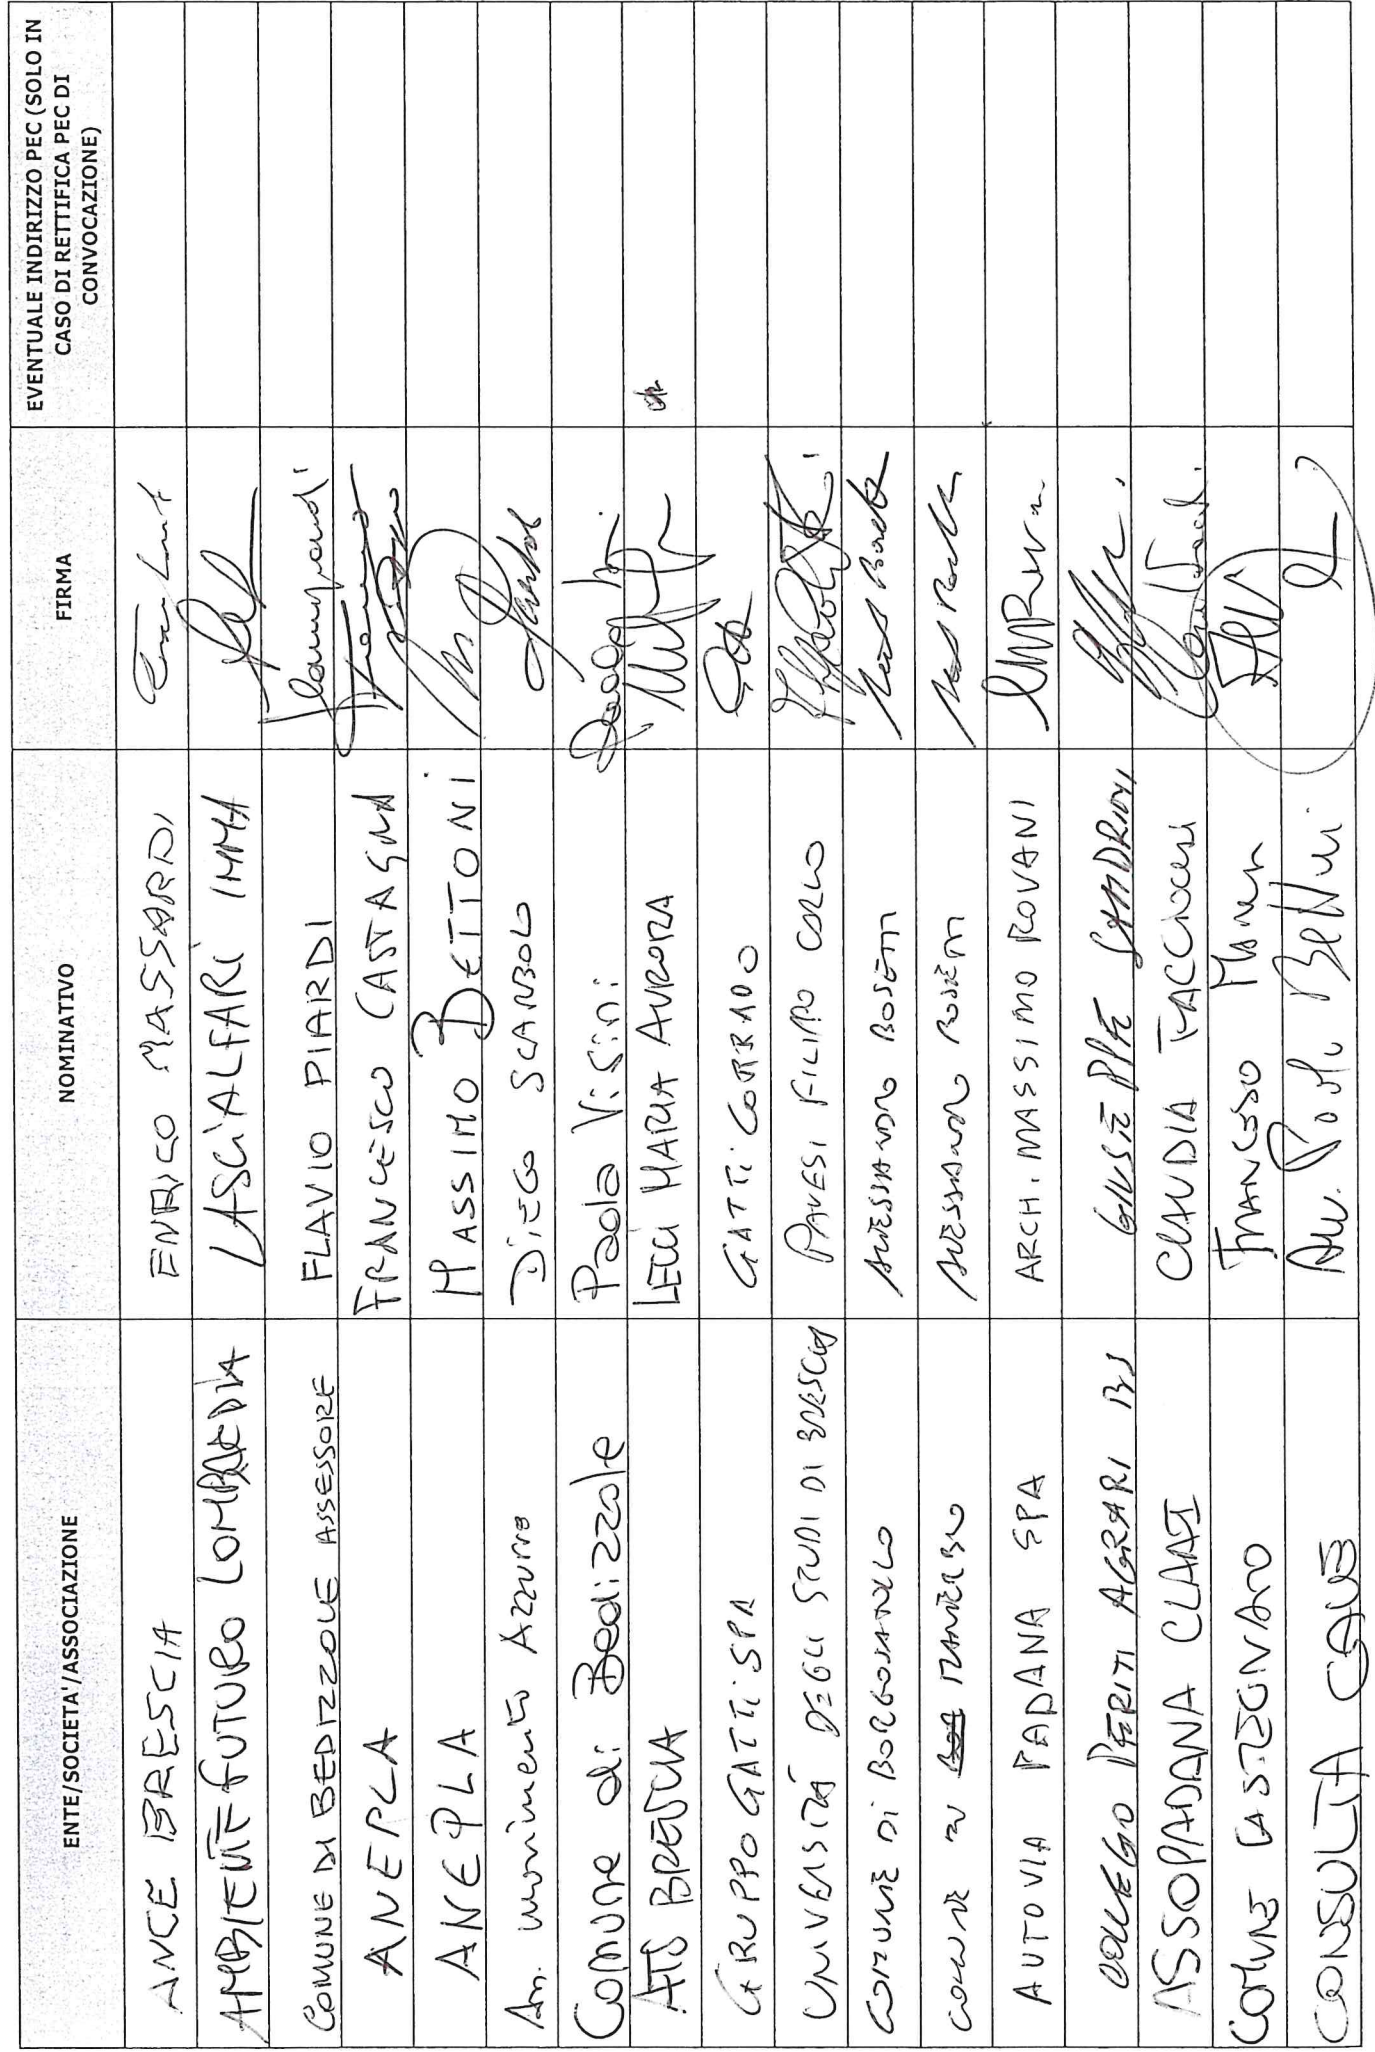 ENTE/SOCIETA'/ASSOCIAZIONE NOMINATIVO FIRMA EVENTUALE INDIRIZZO PEC (SOLO IN
CASO DI RETTIFICA PEC DI
CONVOCAZIONE)
ANCE BRESCIA ENRICO MASSARDI
AMBIENTE FUTURO LOMBARDIA LASCIALFARI IMMA
COMUNE DI BEDIZZOLE ASSESSORE FLAVIO PIARDI
ANEPLA FRANCESCO CASTAGNA
ANEPLA MASSIMO BETTONI
Movimento Azzurro DIEGO SCARBOLO
Comune di Bedizzole Paola Visini
ATS BRESCIA LECCI MARIA AURORA
GRUPPO GATTI SPA GATTI CORRADO
UNIVERSITÀ DEGLI STUDI DI BRESCIA PAVESI FILIPPO CARLO
COMUNE DI BORGOSATOLLO ALESSANDRO BOSETTI
COMUNE DI MANERBIO ALESSANDRO BOSETTI
AUTOVIA PADANA SPA ARCH. MASSIMO ROVANI
COLLEGIO PERITI AGRARI BS GIUSEPPE SANDRINI
ASSOPADANA CLAAI CLAUDIA FACCHETTI
COMUNE CASTEGNATO FRANCESCO
CONSULTA CAVE Avv. Paolo Bellini